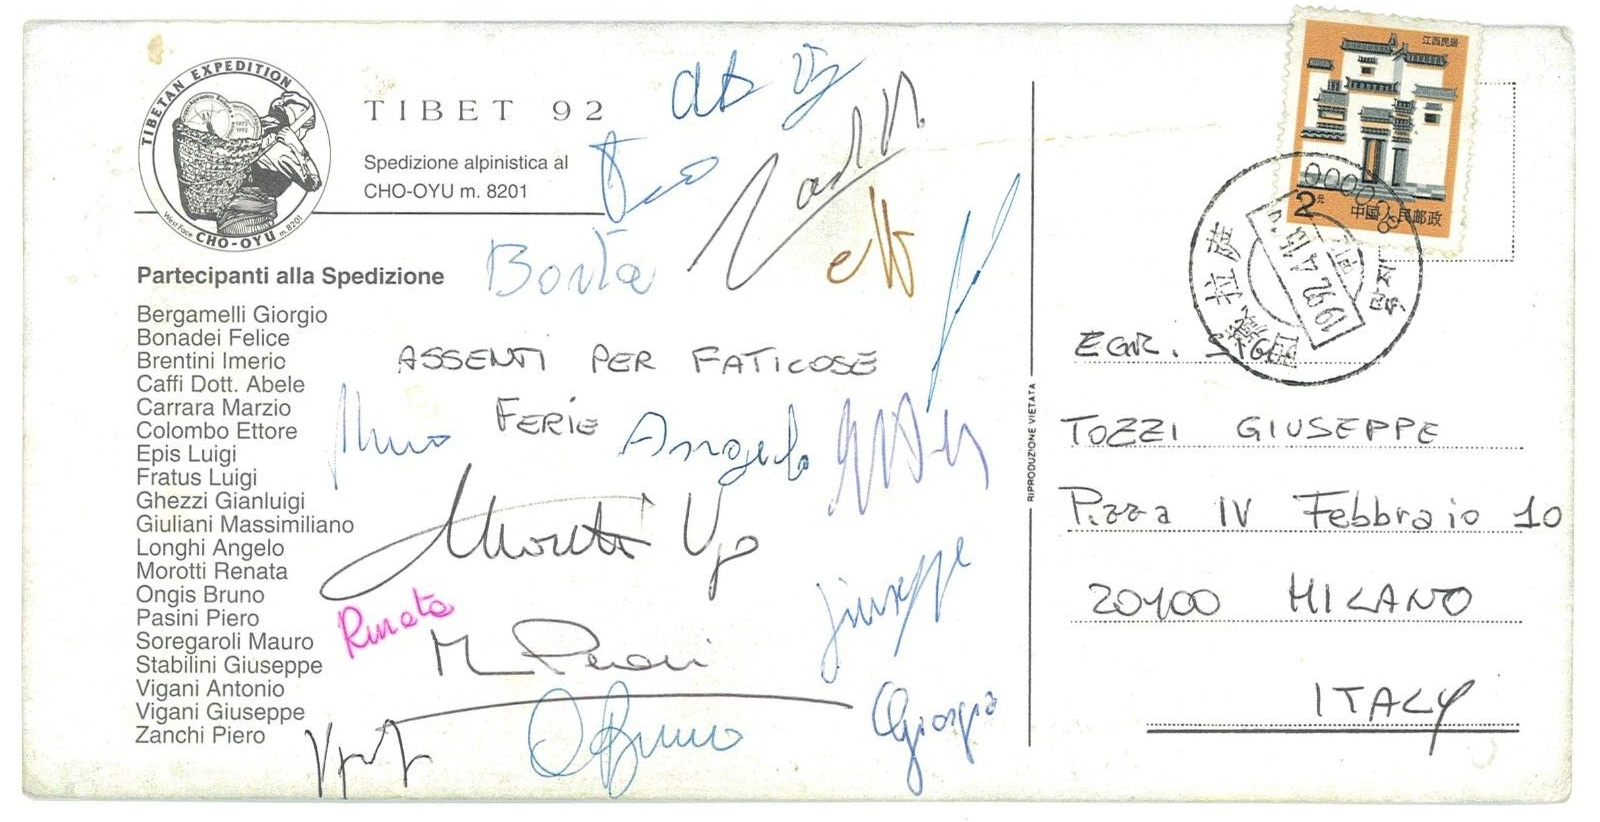 TIBETAN EXPEDITION
West Face CHO-OYU m. 8201
TIBET 92
Spedizione alpinistica al
CHO-OYU m. 8201
Partecipanti alla Spedizione
Bergamelli Giorgio
Bonadei Felice
Brentini Imeric
Caffi Dott. Abele
Carrara Marzio
Colombo Ettore
Epis Luigi
Fratus Luigi
Ghezzi Gianluigi
Giuliani Massimiliano
Longhi Angelo
Morotti Renata
Ongis Bruno
Pasini Piero
Soregaroli Mauro
Stabilini Giuseppe
Vigani Antonio
Vigani Giuseppe
Zanchi Piero
ASSENTI PER FATICOSE
FERIE
Angelo
Renata
Giuseppe
Bruno
Giorgio
RIPRODUZIONE VIETATA
江西民居
2元
中国人民邮政
西藏拉萨
1992.4.15
EGR. SIG.
TOZZI GIUSEPPE
P.zza IV Febbraio 10
20100 MILANO
ITALY